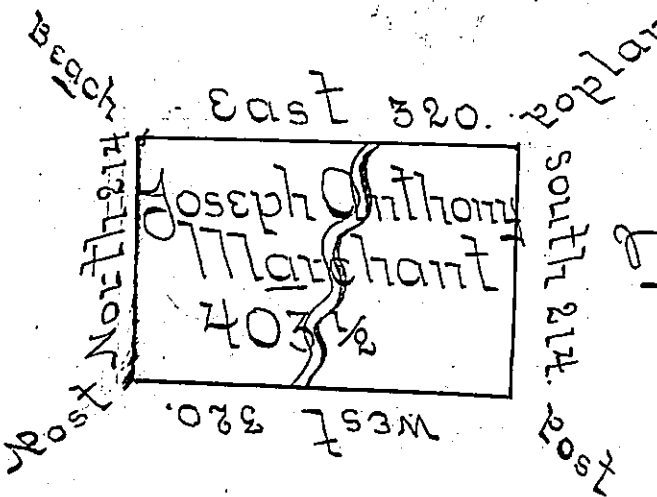 Beach
East 320.
Poplar
North 214
Joseph Anthony
Marchant
403 1/2
South 214.
Post
West 320.
Post